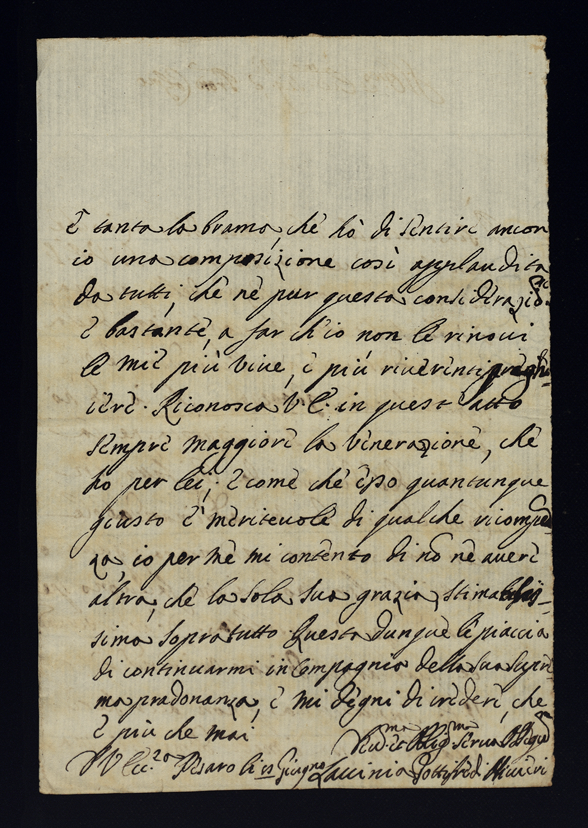 È tanta la brama, che hò di sentire ancor
io una composizione così applaudita
da tutti, che nè pur questa considerazione
è bastante, a far ch'io non le rinovi
le mie più vive, e più riverenti preghi-
iere. Riconosca V.E. in quest'atto
sempre maggiore la venerazione, che
ho per lei; e come che esso quantunque
giusto è meritevole di qualche ricompe-
za io per me mi contento di nõ ne avere
altra, che la sola sua grazia, stimabilis-
sima sopratutto. Questa dunque le piaccia
di continuarmi in compagnia della sua supre-
ma pradonanza, e mi degni di credere, che
è più che mai
Pesaro li Giugno Lavinia Gottifredi